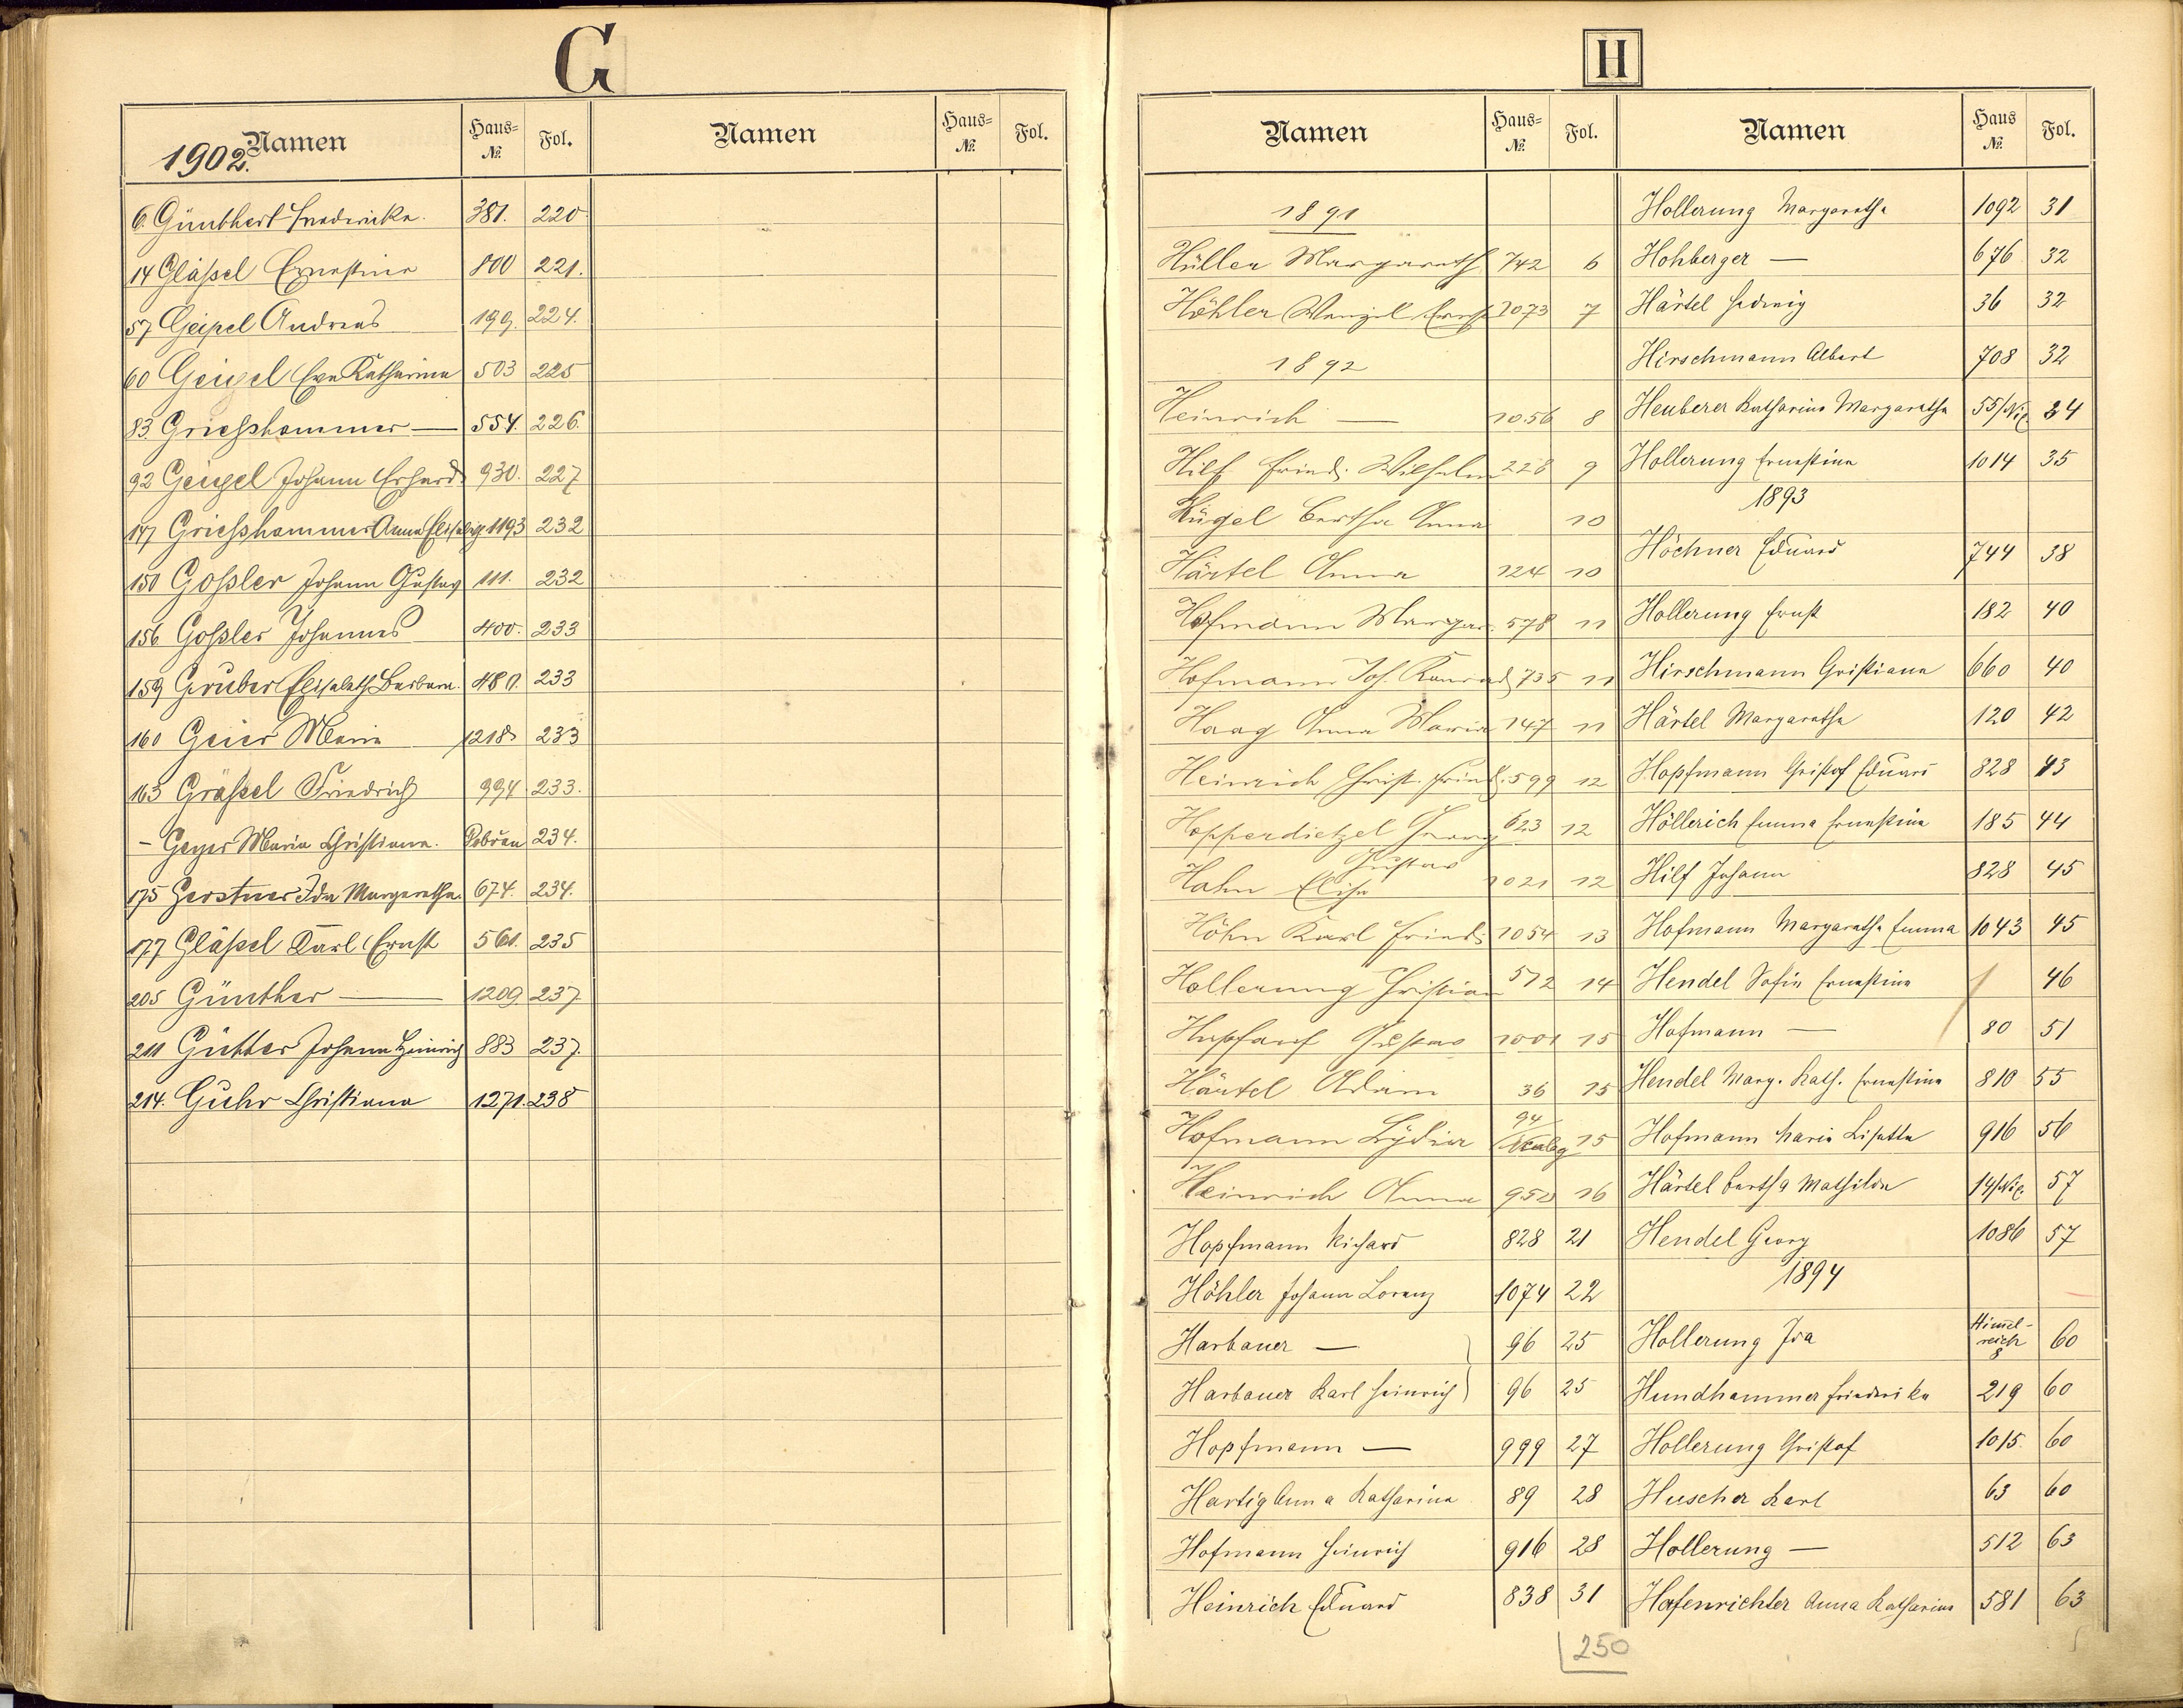 G
Namen Haus-№. Fol. Namen Haus-№. Fol.
1902.
6. Günthert Friedericke. 381. 220
14 Gläßel Ernestine 800 221.
57 Geipel Andreas 199. 224.
60 Geigel Eva Katharina 503 225
83. Grießhammer — 554. 226.
92 Geigel Johann Erhard 930. 227
147 Grießhammer Anna 1193 232
150 Goßler Johann Gustav 111. 232
156 Goßler Johannes 400. 233
159 Gruber Elisabeth Barbara. 480. 233
160 Geier Maria 1218 233
163 Gräßel Friedrich 994. 233.
- Geyer Maria Christiana. 234.
175 Gerstner Ida Margaretha. 674. 234.
177 Gläßel Karl Ernst 561. 235
205 Günther — 1209 237
211 Gütter Johann Heinrich 883 237.
214. Guhr Christiana 1271. 238
H
Namen Haus-№. Fol.
1891
Hüller Margareth 742 6
Höhler Wenzel Ernst 1073 7
1892
Heinrich — 1056 8
Hilf Fried. Wilhelm 228 9
Hügel Bertha Anna 10
Härtel Anna 124 10
Hofmann Margar. 578 11
Hofmann Joh. Konrad 735 11
Haag Anna Maria 147 11
Heinrich Christ. Fried. 599 12
Hopperdietzel Georg 623 12
Gustav
Hahn Elise 1021 12
Höhn Karl Fried. 1054 13
Hollerung Christian 512 14
Hupfauf Gustav 1001 15
Härtel Adam 36 15
Hofmann Lydia 94 15
Heinrich Anna 950 16
Hopfmann Richard 828 21
Höhler Johann Lorenz 1074 22
Harbauer — 96 25
Harbauer Karl Heinrich 96 25
Hopfmann — 999 27
Hartig Anna Katharina 89 28
Hofmann Heinrich 916 28
Heinrich Eduard 838 31
Namen Haus №. Fol.
Hollerung Margaretha 1092 31
Hohberger — 676 32
Härtel Hedwig 36 32
Hirschmann Albert 708 32
Heuberer Katharina Margaretha 55/Nil. 34
Hollerung Ernestine 1014 35
1893
Höchner Eduard 744 38
Hollerung Ernst 182 40
Hirschmann Christiana 660 40
Härtel Margaretha 120 42
Hopfmann Christof Eduard 828 43
Höllerich Emma Ernestine 185 44
Hilf Johann 828 45
Hofmann Margaretha Emma 1043 45
Hendel Sofie Ernestine 46
Hofmann — 80 51
Hendel Marg. Kath. Ernestine 810 55
Hofmann Maria Lisetta 916 56
Härtel Bertha Mathilde 14/Nil. 57
Hendel Georg 1086 57
1894
Hollerung Ida Himel-reich 8 60
Hundhammer Friederike 219 60
Hollerung Christof 1015. 60
Huscher Karl 63 60
Hollerung — 512 63
Hafenrichter Anna Katharina 581 63
250